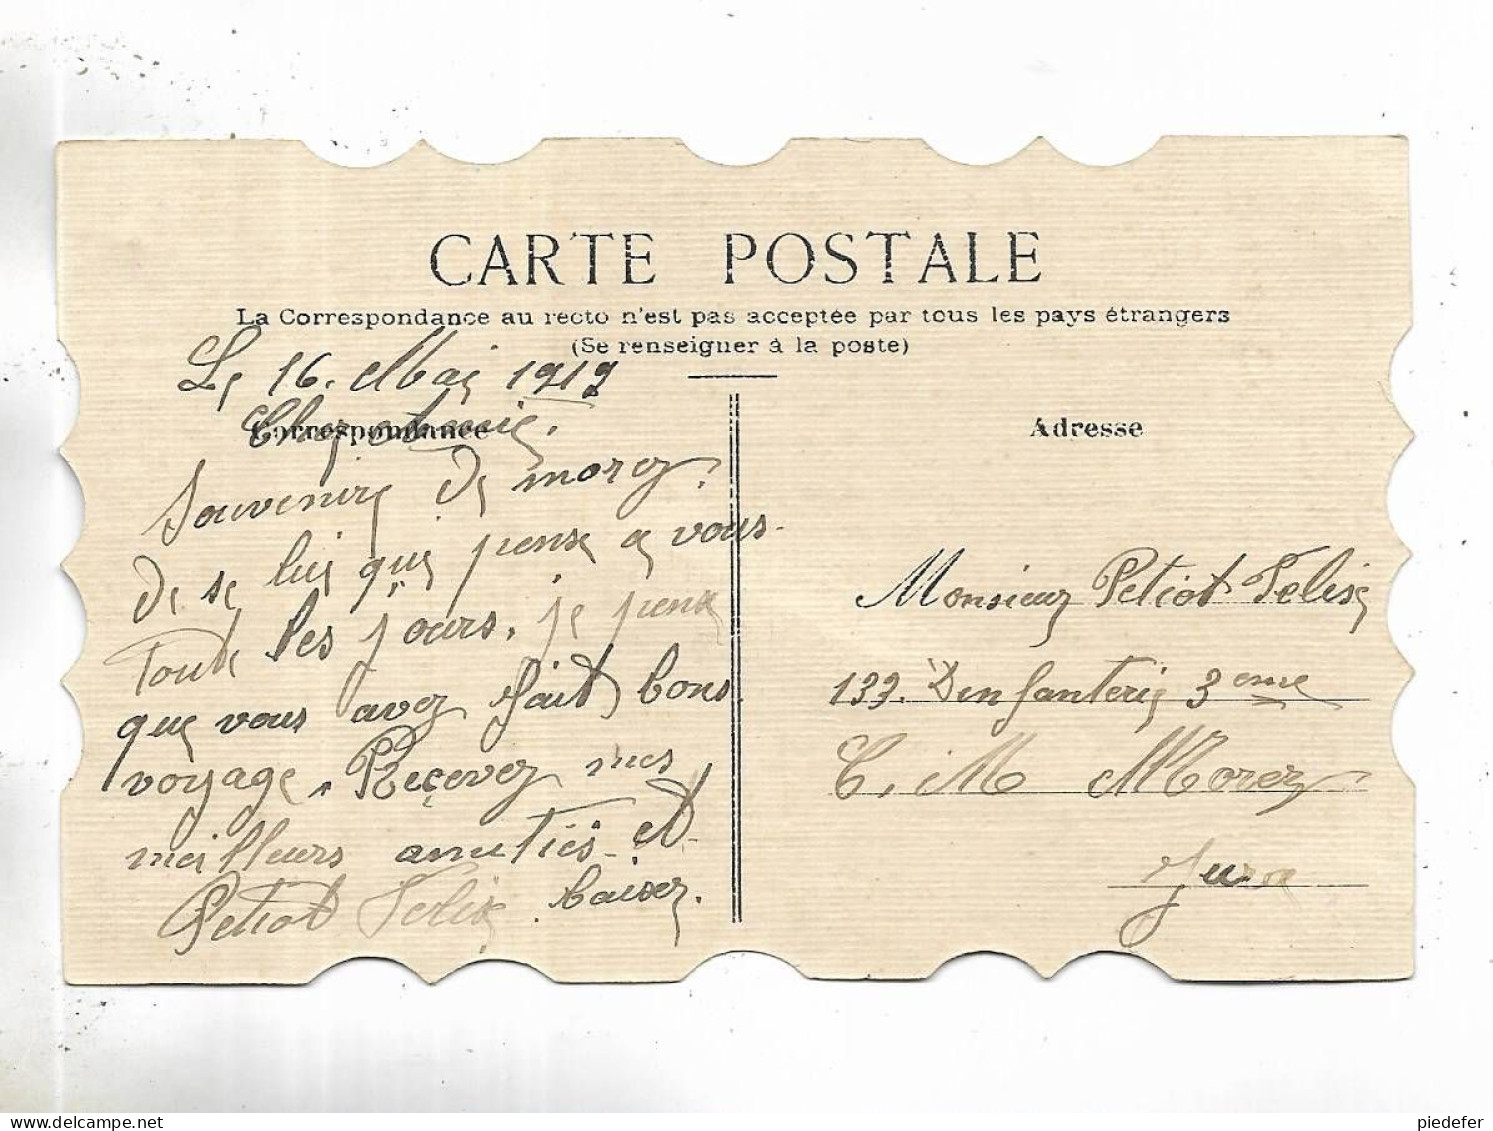 CARTE POSTALE
La Correspondance au recto n'est pas acceptée par tous les pays étrangers
(Se renseigner à la poste)
Le 16. Mai 1919
Correspondance
Adresse
Souvenire de morez.
De se lui que pense a vous.
Tout les jours. je pense
que vous avez fait bons
voyage. Reçevez mes
meilleurs amitiés. et
Petiot Felix. baisez.
Monsieur Petiot Felix
133. Dinfanterie 3eme
C. M Morez
Jura
piedefer